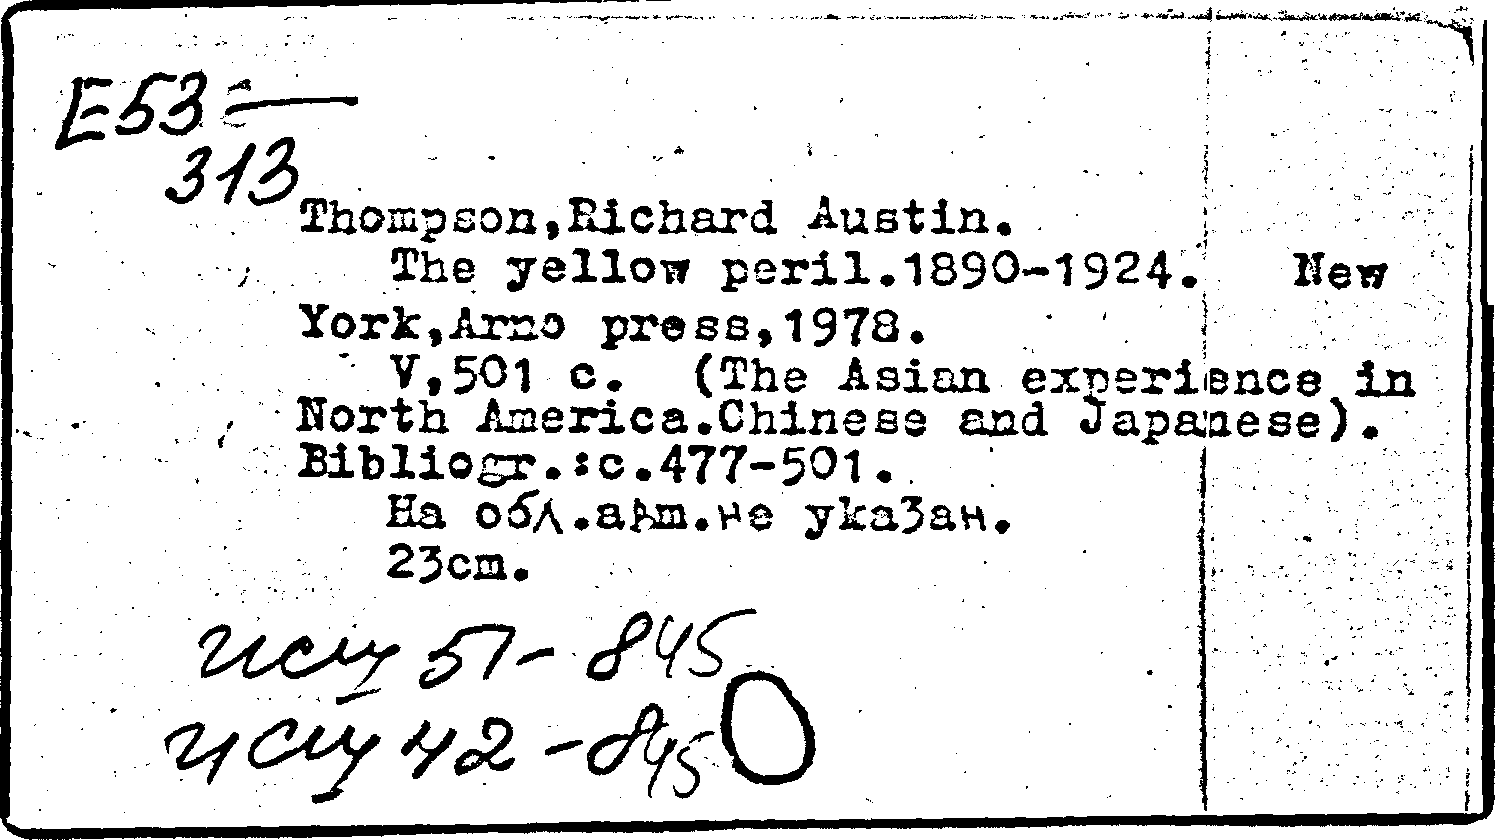 E53—
313
Thompson,Richard Austin.
The yellow peril.1890-1924. New
York,Arno press,1978.
V,501 c. (The Asian experience in
North America.Chinese and Japanese).
Bibliogr.:c.477-501.
На обл.авт.не указан.
23cm.
51-845
42-845